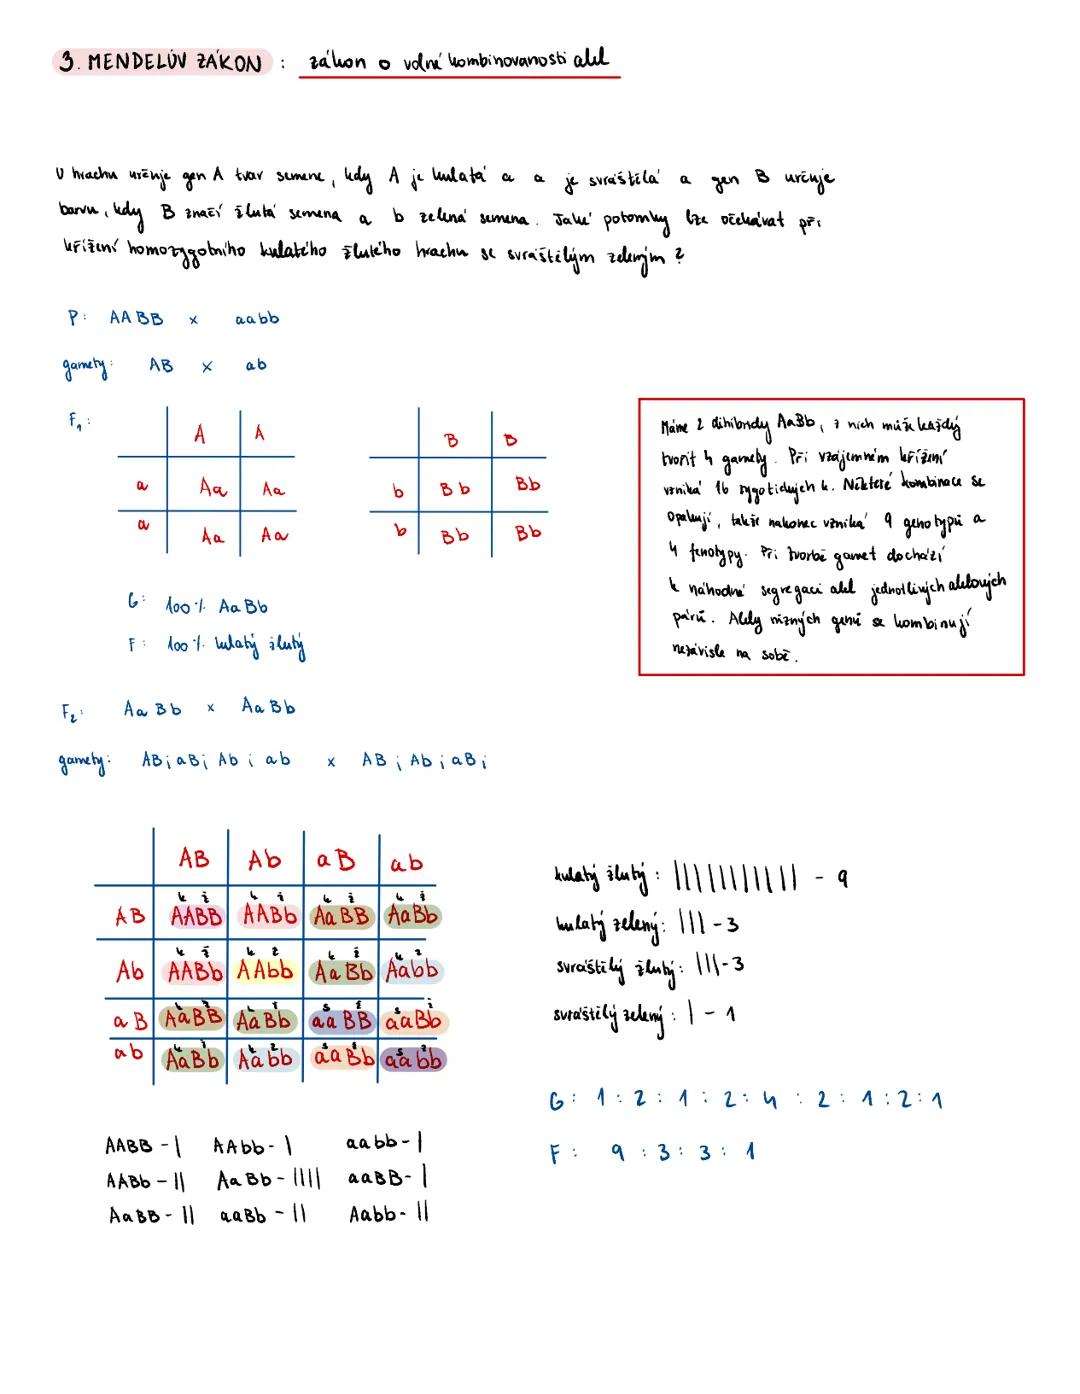 3. MENDELŮV ZÁKON : zákon o volné kombinovanosti alel
U hrachu určuje gen A tvar semene, kdy A je kulatá a a je svraštilá a gen B určuje
barvu, kdy B značí žlutá semena a b zelená semena. Jaké potomky lze očekávat při
křížení homozygotního kulatého žlutého hrachu se svraštilým zeleným?
P: AABB x aabb
gamety: AB x ab
F1:
A A
a Aa Aa
a Aa Aa
B B
b Bb Bb
b Bb Bb
G: 100 % AaBb
F: 100 % kulatý žlutý
Máme 2 dihibridy AaBb, z nich může každý
tvořit 4 gamety. Při vzájemném křížení
vzniká 16 zygotických k. Některé kombinace se
opakují, takže nakonec vzniká 9 genotypů a
4 fenotypy. Při tvorbě gamet dochází
k náhodné segregaci alel jednotlivých alelových
párů. Alely různých genů se kombinují
nezávisle na sobě.
F2: AaBb x AaBb
gamety: AB; aB; Ab; ab x AB; Ab; aB;
AB Ab aB ab
k ž k ž k ž k ž
AB AABB AABb AaBB AaBb
k ž k z k ž k z
Ab AABb AAbb AaBb Aabb
k ž k ž s ž s ž
aB AaBB AaBb aaBB aaBb
k ž k z s ž s z
ab AaBb Aabb aaBb aabb
kulatý žlutý: ||||||||||| - 9
kulatý zelený: ||| - 3
svraštilý žlutý: ||| - 3
svraštilý zelený: | - 1
G: 1 : 2 : 1 : 2 : 4 : 2 : 1 : 2 : 1
F: 9 : 3 : 3 : 1
AABB - | AAbb - | aabb - |
AABb - || AaBb - |||| aaBB - |
AaBB - || aaBb - || Aabb - ||